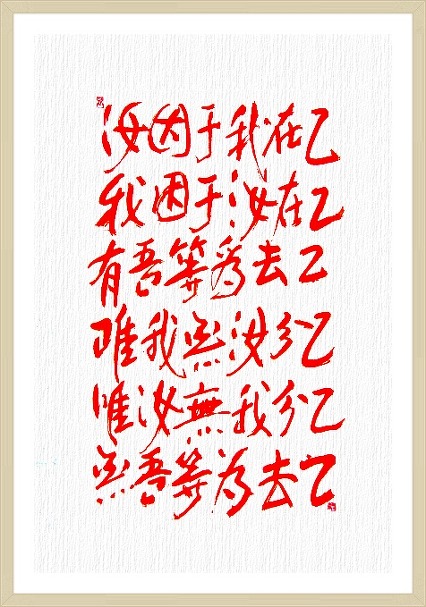 汝因于我在乙
我因于汝在乙
有吾等為去乙
唯我無汝分乙
唯汝無我分乙
無吾等為去乙